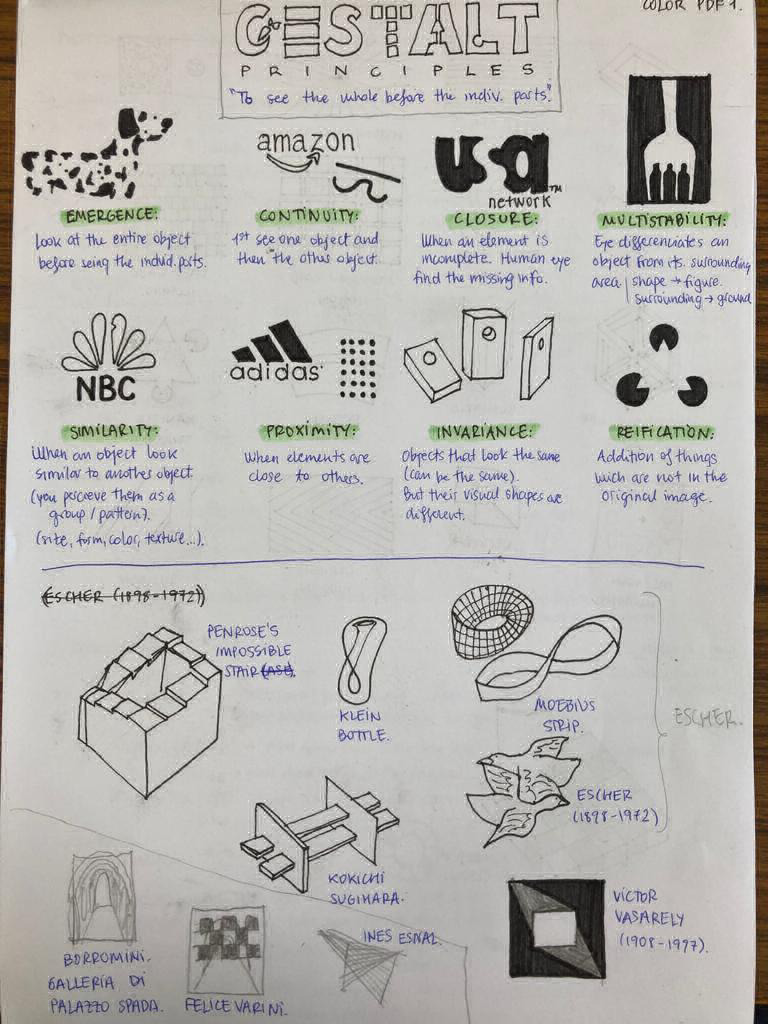 COLOR PDF 1.
GESTALT
PRINCIPLES
"To see the whole before the indiv. parts".
amazon
usa
network™
EMERGENCE:
Look at the entire object
before seing the individ. parts.
CONTINUITY:
1st see one object and
then the other object.
CLOSURE:
When an element is
incomplete. Human eye
find the missing info.
MULTISTABILITY:
Eye differenciates an
object from its. surrounding
area | shape → figure.
surrounding → ground
NBC
adidas
SIMILARITY:
When an object look
similar to another object.
(you perceive them as a
group / pattern).
(size, form, color, texture...).
PROXIMITY:
When elements are
close to others.
INVARIANCE:
Objects that look the same
(can be the same).
But their visual shapes are
different.
REIFICATION:
Addition of things
wich are not in the
original image.
(ESCHER (1898-1972))
PENROSE'S
IMPOSSIBLE
STAIR
KLEIN
BOTTLE.
MOEBIUS
STRIP.
ESCHER.
ESCHER
(1898-1972)
KOKICHI
SUGIHARA.
BORROMINI.
GALLERIA DI
PALAZZO SPADA.
FELICE VARINI.
INES ESNAL.
VÍCTOR
VASARELY
(1908-1997).